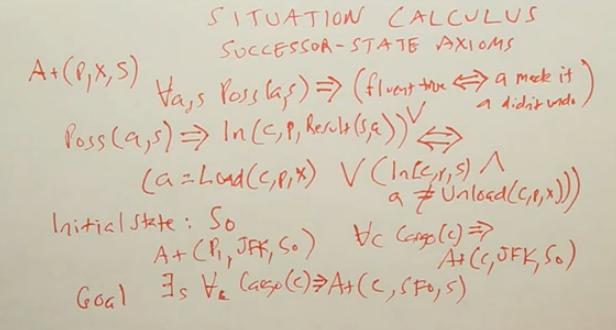 SITUATION CALCULUS
SUCCESSOR-STATE AXIOMS
At(P,x,s)
∀a,s Poss(a,s) ⇒ (fluent true ⇔ a made it
∨ a didn't undo)
Poss(a,s) ⇒ In(c,p,Result(s,a)) ⇔
(a = Load(c,p,x) ∨ (In(c,p,s) ∧
a ≠ Unload(c,p,x)))
Initial state: S₀
At(P₁,JFK,S₀) ∀c Cargo(c) ⇒
At(c,JFK,S₀)
Goal ∃s ∀c Cargo(c) ⇒ At(c,SFO,s)